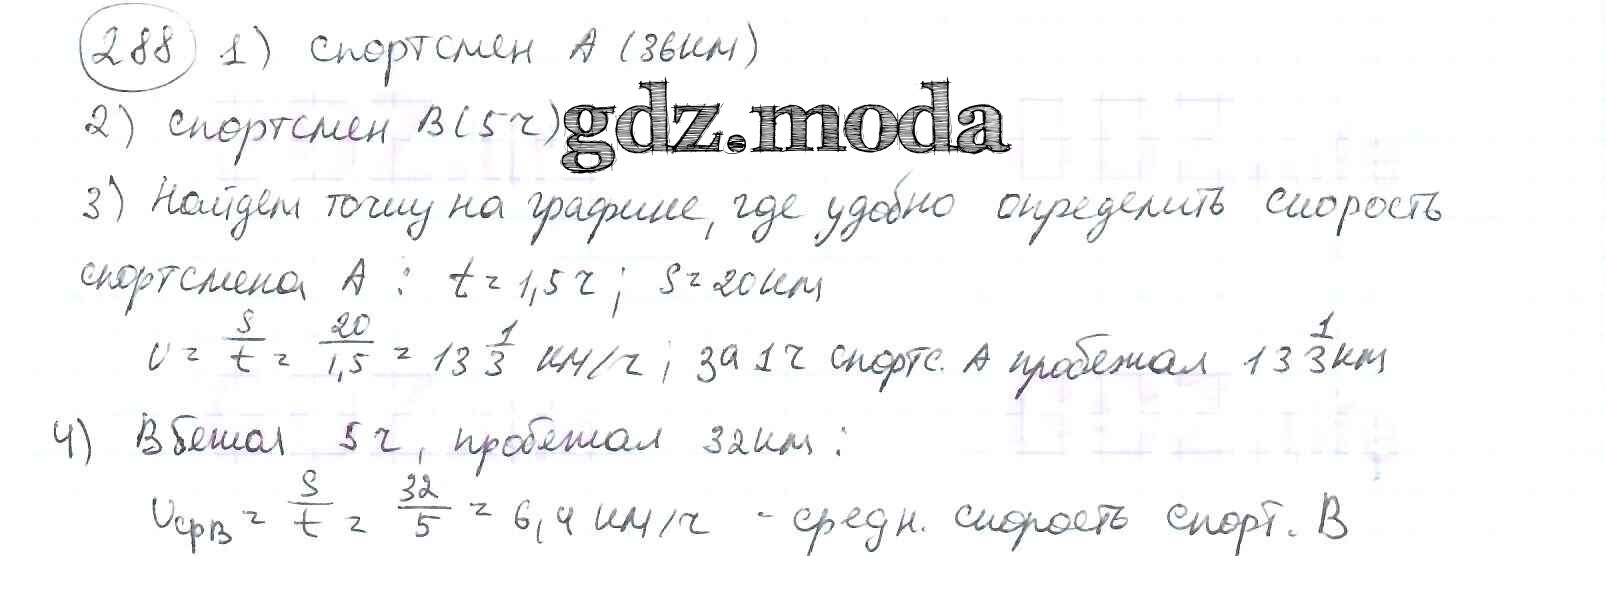 288 1) спортсмен А (36км)
2) спортсмен В (5ч) gdz.moda
3) Найдем точку на графике, где удобно определить скорость
спортсмена А : t = 1,5 ч ; S = 20 км
v = S/t = 20/1,5 = 13 1/3 км/ч ; за 1 ч спортс. А пробежал 13 1/3 км
4) В бежал 5 ч, пробежал 32 км :
vсрВ = S/t = 32/5 = 6,4 км/ч - средн. скорость спорт. В